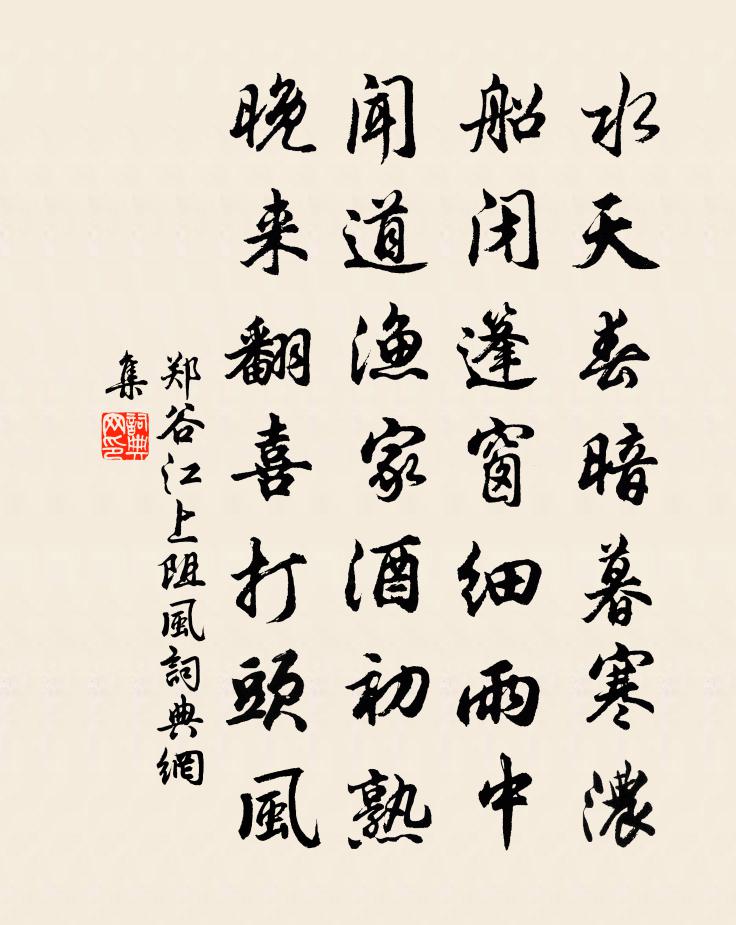 水天春暗暮寒濃
船闭蓬窗细雨中
闻道渔家酒初熟
晚来翻喜打頭風
郑谷江上阻風詞典網
集
詞典
网印